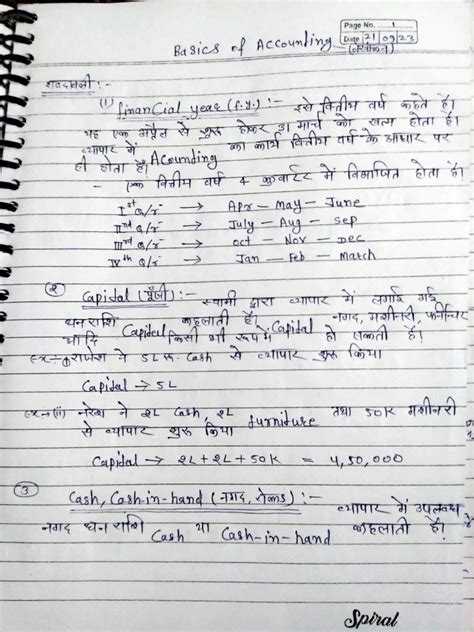 Page No. 1
Date 21/09/23
Basics of Accounting
(लेखांकन)
शब्दावली :-
(1) financial year (f.y.) :- इसे वित्तीय वर्ष कहते है।
यह एक अप्रैल से शुरू होकर 31 मार्च को खत्म होता है।
व्यापार में Acounting का कार्य वित्तीय वर्ष के आधार पर
ही होता है।
- एक वित्तीय वर्ष 4 क्वार्टर में विभाजित होता है।
Ist Q/r → Apr - May - June
IInd Q/r → July - Aug - Sep
IIIrd Q/r → Oct - Nov - Dec
IVth Q/r → Jan - Feb - March
② Capital (पूँजी) :- स्वामी द्वारा व्यापार में लगाई गई
धन राशि Capital कहलाती है। नगद, मशीनरी, फर्नीचर
आदि किसी भी रूप में Capital हो सकती है।
Ex → (i) राजेश ने 5L रू. Cash से व्यापार शुरू किया
Capital → 5L
Ex → (ii) नरेश ने 2L Cash, 2L furniture तथा 50K मशीनरी
से व्यापार शुरू किया
Capital → 2L + 2L + 50K = 4,50,000
③ Cash, Cash-in-hand (नगद, रोकड़) :- व्यापार में उपलब्ध
नगद धन राशि Cash या Cash-in-hand कहलाती है।
Spiral